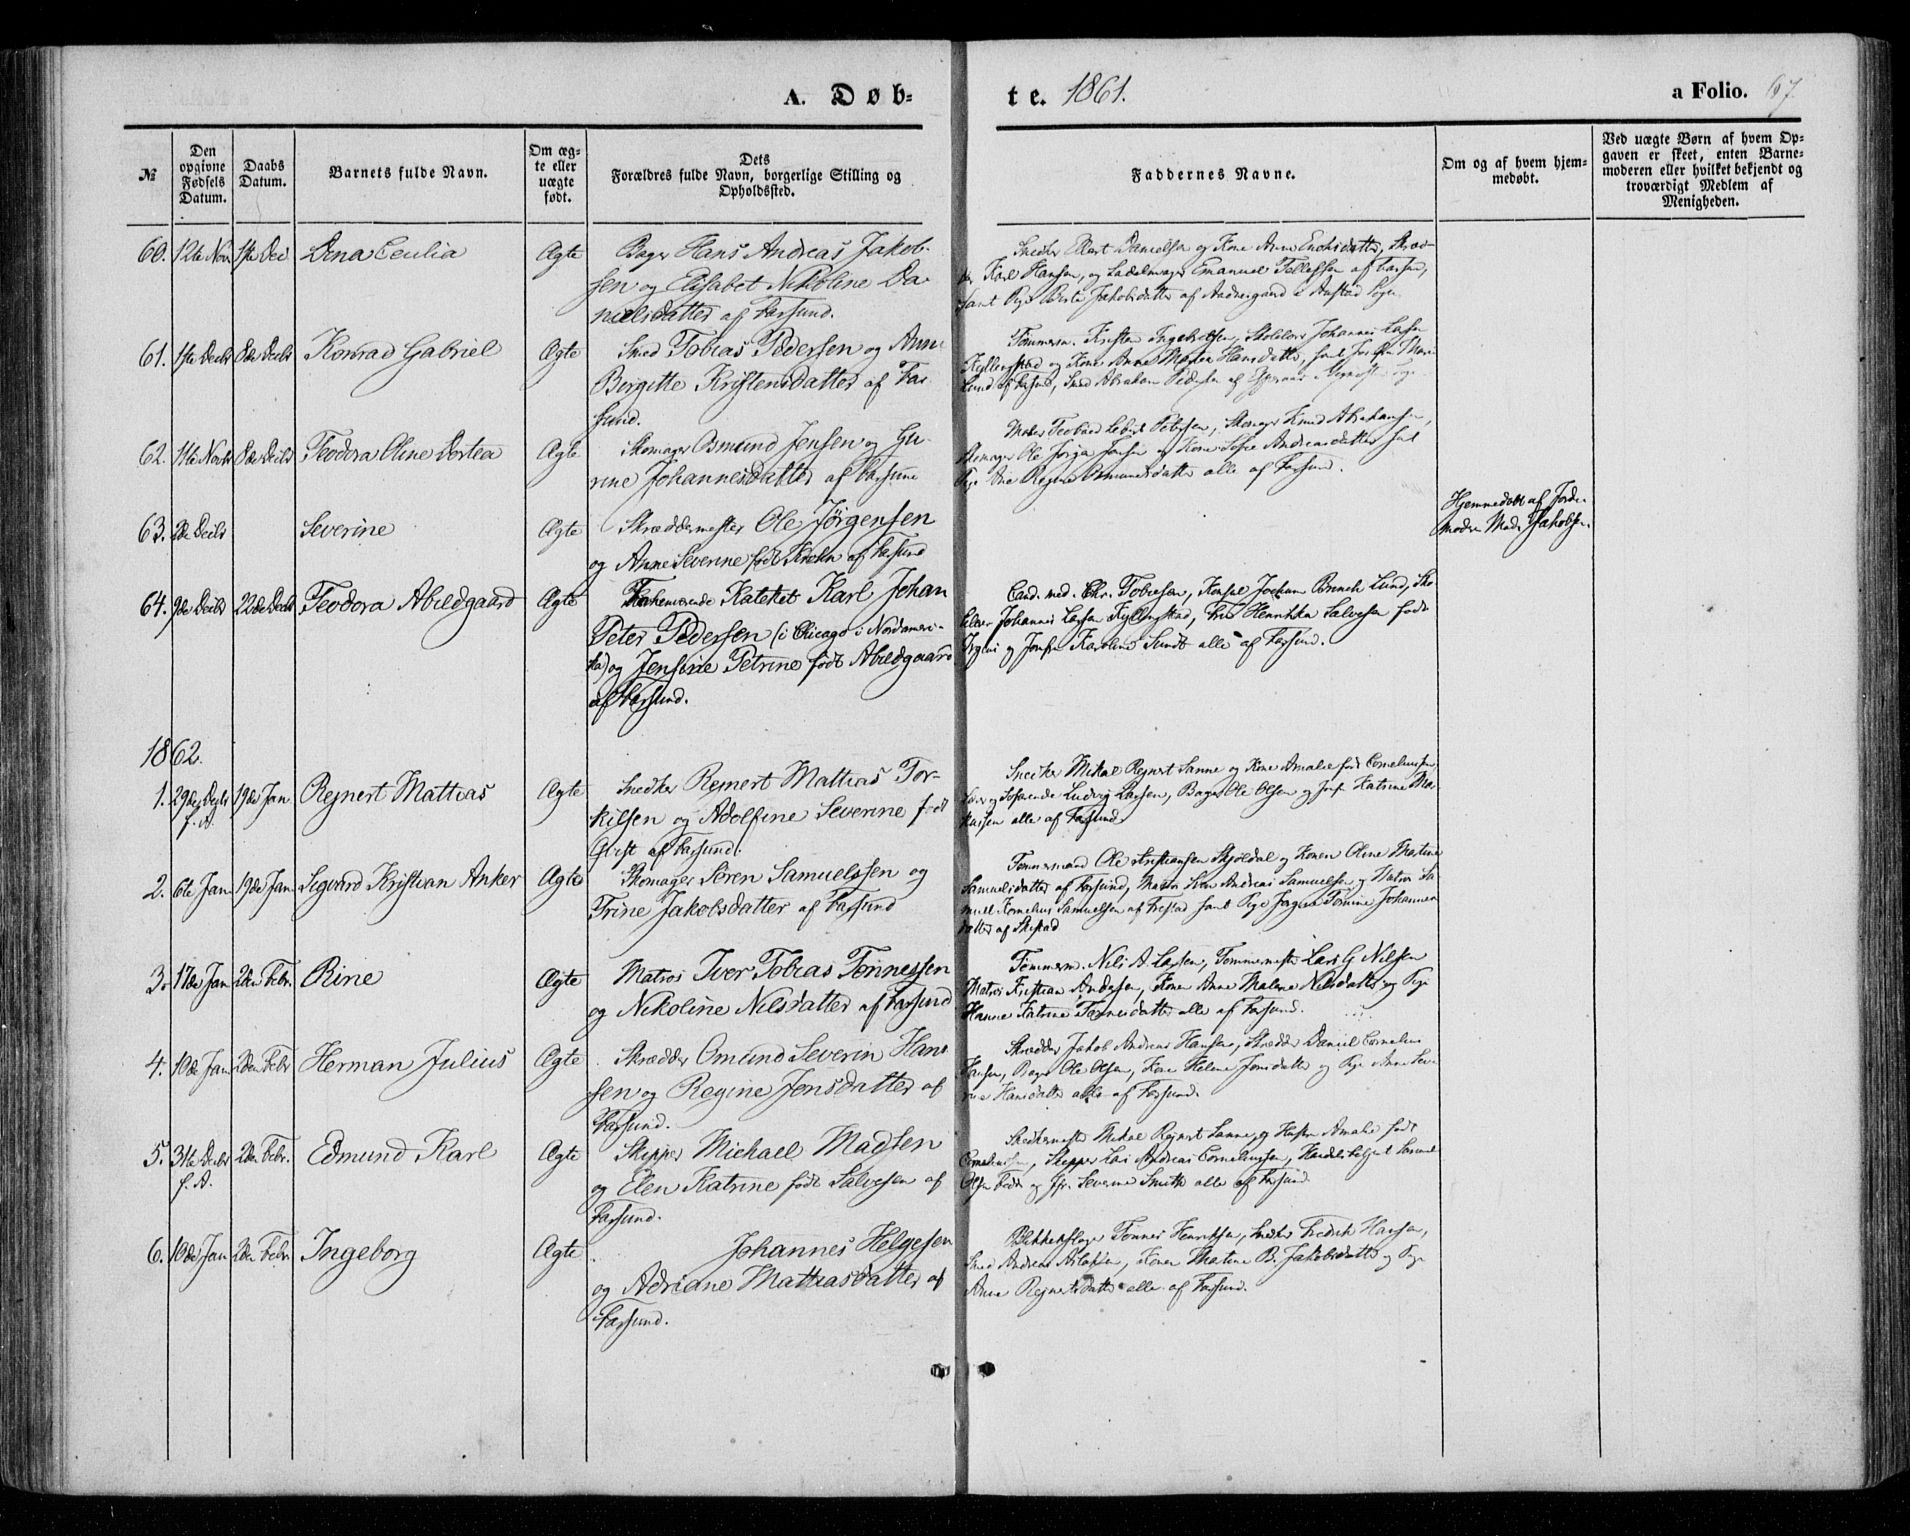 A. Døb-
te. 1861.
a Folio. 67.
№
Den opgivne Fødsels Datum.
Daabs Datum.
Barnets fulde Navn.
Om ægte eller uægte født.
Dets
Forældres fulde Navn, borgerlige Stilling og
Opholdssted.
Faddernes Navne.
Om og af hvem hjemmedøbt.
Ved uægte Børn af hvem Opgaven er skeet, enten Barnemoderen eller hvilket bekjendt og troværdigt Medlem af Menigheden.
60. 12te Nov 1ste Dec Dina Cecilia Ægte Bager Hans Andreas Jakob-
sen og Elisabet Nikoline Da-
nielsdatter af Farsund.
Snedker Danielsen og Kone Anne
Karl Hansen, og Sadelmager Emanuel Tellefsen af Farsund,
samt Pige Berte Jakobsdatter af
61. 1ste Decbr 8de Decbr Konrad Gabriel Ægte Smed Tobias Pedersen og Anne
Borgitte Kristensdatter af Far-
sund.
Tømmerm. Kristen Ingebretsen, Skolelærer Johannes Larsen
Kyllingstad og Kone Anne Hansdatter,
Lund af Farsund, Smed Abraham Pedersen af
62. 11te Novbr 8de Decbr Teodora Oline Dortea Ægte Skomager Osmund Jensen og Gu-
rine Johannesdatter af Farsund
Petersen, Skomager Knud Abrahamsen,
Skomager Ole Jensen og Kone Andreasdatter samt
Pige Ane Regine Osmundsdatter alle af Farsund.
63. 2de Decbr Severine Ægte Skræddermester Ole Jörgensen
og Anne Severine født Krohn af Farsund
Hjemmedøbt af Jorde-
moder Mad. Jakobsen.
64. 9de Decbr 22de Decbr Teodora Abildgaard Ægte Fraværende Kateket Karl Johan
Peter Pedersen (i Chicago i Nordameri-
ka) og Jensine Petrine født Abildgaard
af Farsund.
Cand. med. Chr. Tobiesen, Konsul Jochum Brinch Lund, Sko-
lelærer Johannes Larsen Kyllingstad, Fru Henrikka Salvesen født
og Jomfru Karoline Sundt alle af Farsund.
1862.
1. 29de Decbr f. A. 19de Jan Rejnert Mattias Ægte Snedker Rejnert Mattias Tor-
kilsen og Adolfine Severine født
Qvist af Farsund.
Snedker Mikal Rejnert Sanne og Kone Amalie født Corneliussen,
Søfarende Ludvig Larsen, Bager Ole Olsen og Jomfr Katrine Mar-
kussen alle af Farsund
2. 6te Jan 19de Jan Sigvard Kristian Anker Ægte Skomager Sören Samuelssen og
Trine Jakobsdatter af Farsund
Tømmermand Ole Kristiansen Skjoldal og Konen Oline Martine
Samuelsdatter af Farsund, Matros Sven Andreas Samuelsen og Matros Sa-
muel Kornelius Samuelsen af samt Pige Tomine Johannes-
datter af
3. 17de Jan 2den Febr. Rine Ægte Matros Iver Tobias Tönnessen
og Nikoline Nilsdatter af Farsund
Tømmerm. Nils A. Larsen, Tømmermester Lars G Nilsen
Matros Kristian Andersen, Konen Anne Malene Nilsdatter og Pige
Hanne Katrine Tønnesdatter alle af Farsund.
4. 10de Jan 2den Febr Herman Julius Ægte Skrædder Omund Severin Han-
sen og Regine Jensdatter af
Farsund.
Skrædder Jakob Andreas Hansen, Skrædder Daniel Cornelius
Hansen, Bager Ole Olsen, Kone Helene Jensdatter og Pige Anne Seve-
rine Hansdatter alle af Farsund.
5. 31te Decbr f. A. 2den Febr. Edmund Karl Ægte Skipper Michael Madsen
og Elen Katrine født Salvesen af
Farsund.
Snedkermester Mikal Rejnert Sanne og Hustru Amalie født
Corneliussen, Skipper Andreas Corneliussen, Handelsbetjent
Olsen og Jfr. Severine Smith alle af Farsund
6. 10de Jan 2den Febr Ingeborg Ægte Johannes Helgesen
og Adriane Mattiasdatter af
Farsund.
Blikkenslager Tønnes Henriksen, Snedker Fredrik Hansen,
Smed Andreas Aslaksen, Konen Martine B. Jakobsdatter og Pige
Anne Rejnertsdatter alle af Farsund.